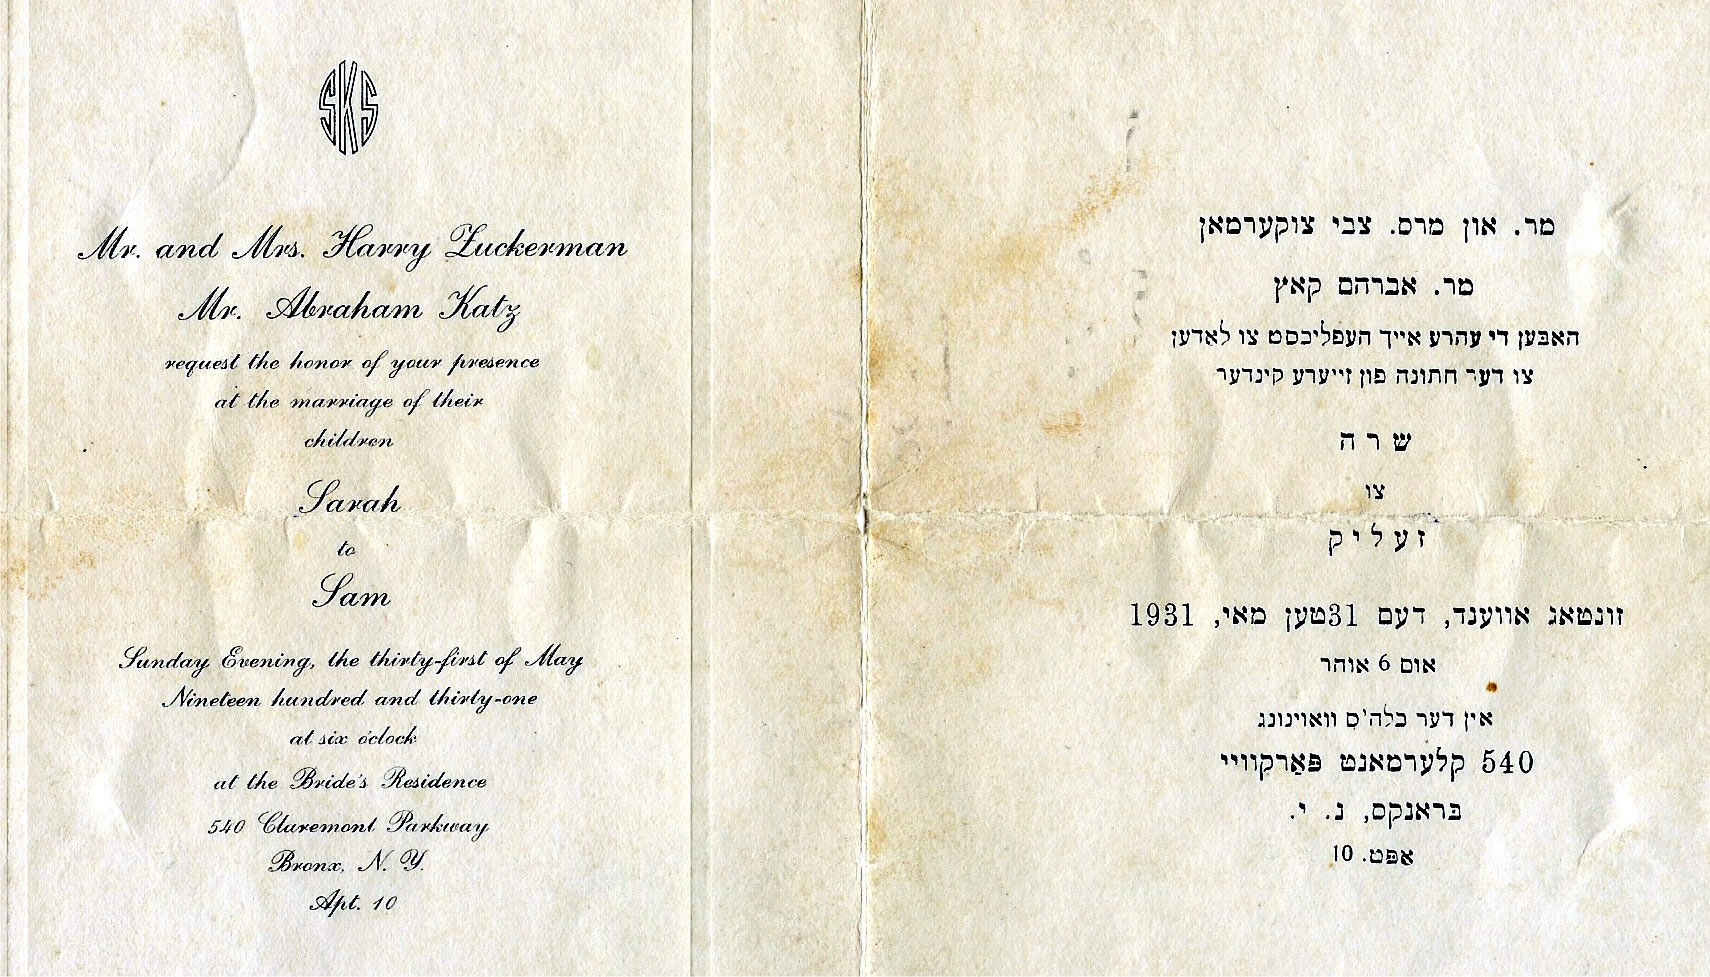 SKS
Mr. and Mrs. Harry Zuckerman
Mr. Abraham Katz
request the honor of your presence
at the marriage of their
children
Sarah
to
Sam
Sunday Evening, the thirty-first of May
Nineteen hundred and thirty-one
at six o'clock
at the Bride's Residence
540 Claremont Parkway
Bronx, N. Y.
Apt. 10
מר. און מרס. צבי צוקערמאן
מר. אברהם קאץ
האבען די עהרע אייך העפליכסט צו לאדען
צו דער חתונה פון זייערע קינדער
שרה
צו
זעליק
זונטאג אווענד, דעם 31טען מאי, 1931
אום 6 אוהר
אין דער כלה'ס וואוינונג
540 קלערמאנט פּאַרקוויי
בראנקס, נ. י.
אפּט. 10